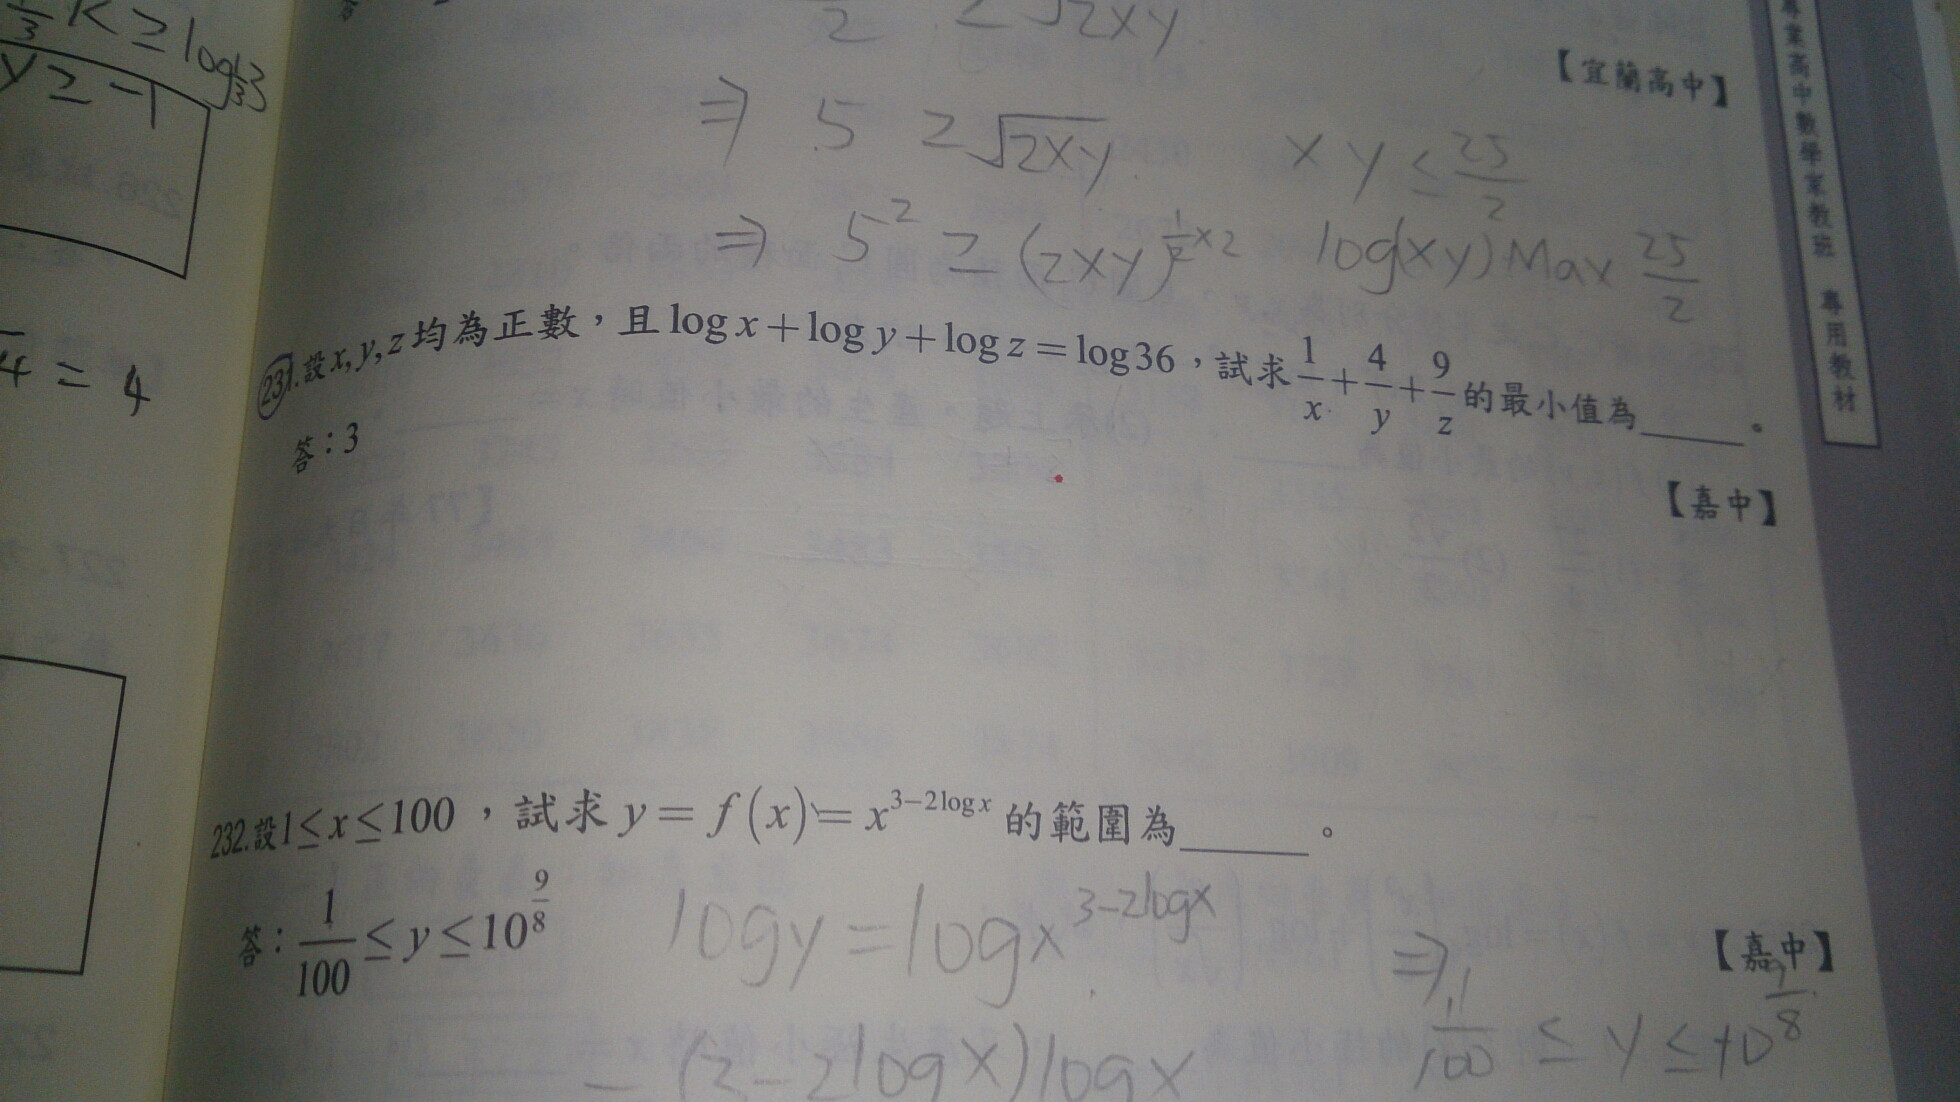 K ≥ log
y ≥ -1
= 4
2 ≥ √2xy
【宜蘭高中】
⇒ 5 ≥ √2xy xy ≤ 25/2
⇒ 5² ≥ (2xy)^{1/2×2} log(xy) Max 25/2
231.設x, y, z均為正數，且log x + log y + log z = log 36，試求1/x + 4/y + 9/z的最小值為____。
答：3
【嘉中】
232.設1≤x≤100，試求y = f(x) = x^{3-2log x}的範圍為____。
答：1/100 ≤ y ≤ 10^{9/8}
【嘉中】
log y = log x^{3-2logx}
⇒ 1/100 ≤ y ≤ 10^{9/8}
= (3-2logx)logx
專業高中數學家教班 專用教材